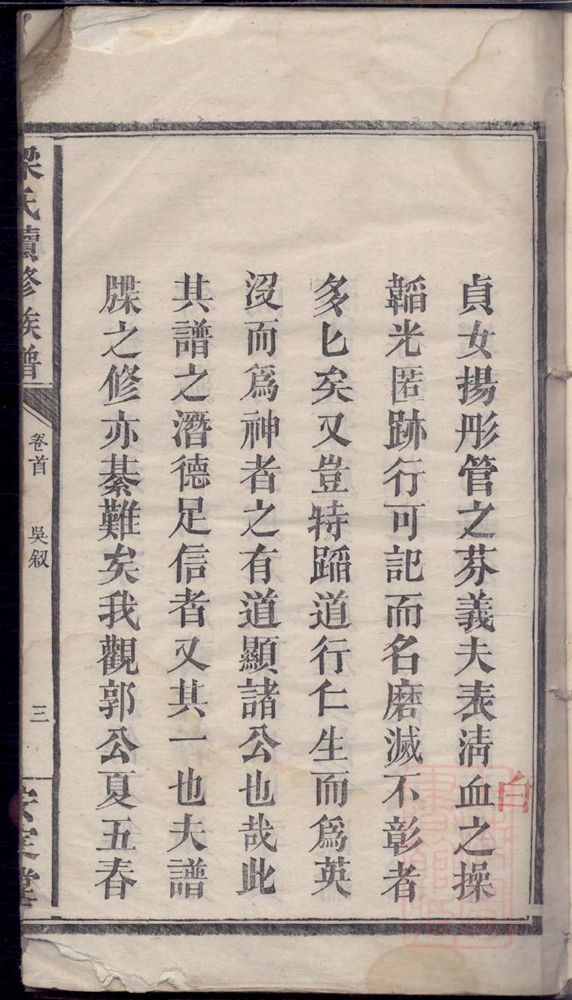 貞女揚彤管之芬義夫表清血之操
韜光匿跡行可記而名磨滅不彰者
多匕矣又豈特蹈道行仁生而爲英
沒而爲神者之有道顯諸公也哉此
其譜之潛德足信者又其一也夫譜
牒之修亦綦難矣我觀郭公夏五春
梁氏續修族譜
卷首 吳叙
三
安定堂